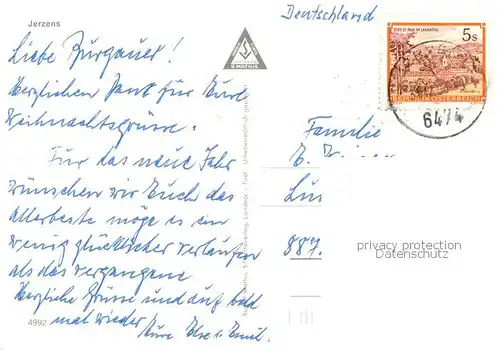 Jerzens
Deutschland
Liebe Burgauer!
Herzlichen Dank für Eure
Weihnachtsgrüsse.
Für das neue Jahr
wünschen wir Euch das
allerbeste möge es ein
wenig glücklicher verlaufen
als das vergangene
Herzliche Grüsse und auf bald
mal wieder
Eure Else u. Emil.
4992
5s
STIFT ST. PAUL IM LAVANTTAL
REPUBLIK ÖSTERREICH
6474
Familie
E.
887.
privacy protection
Datenschutz